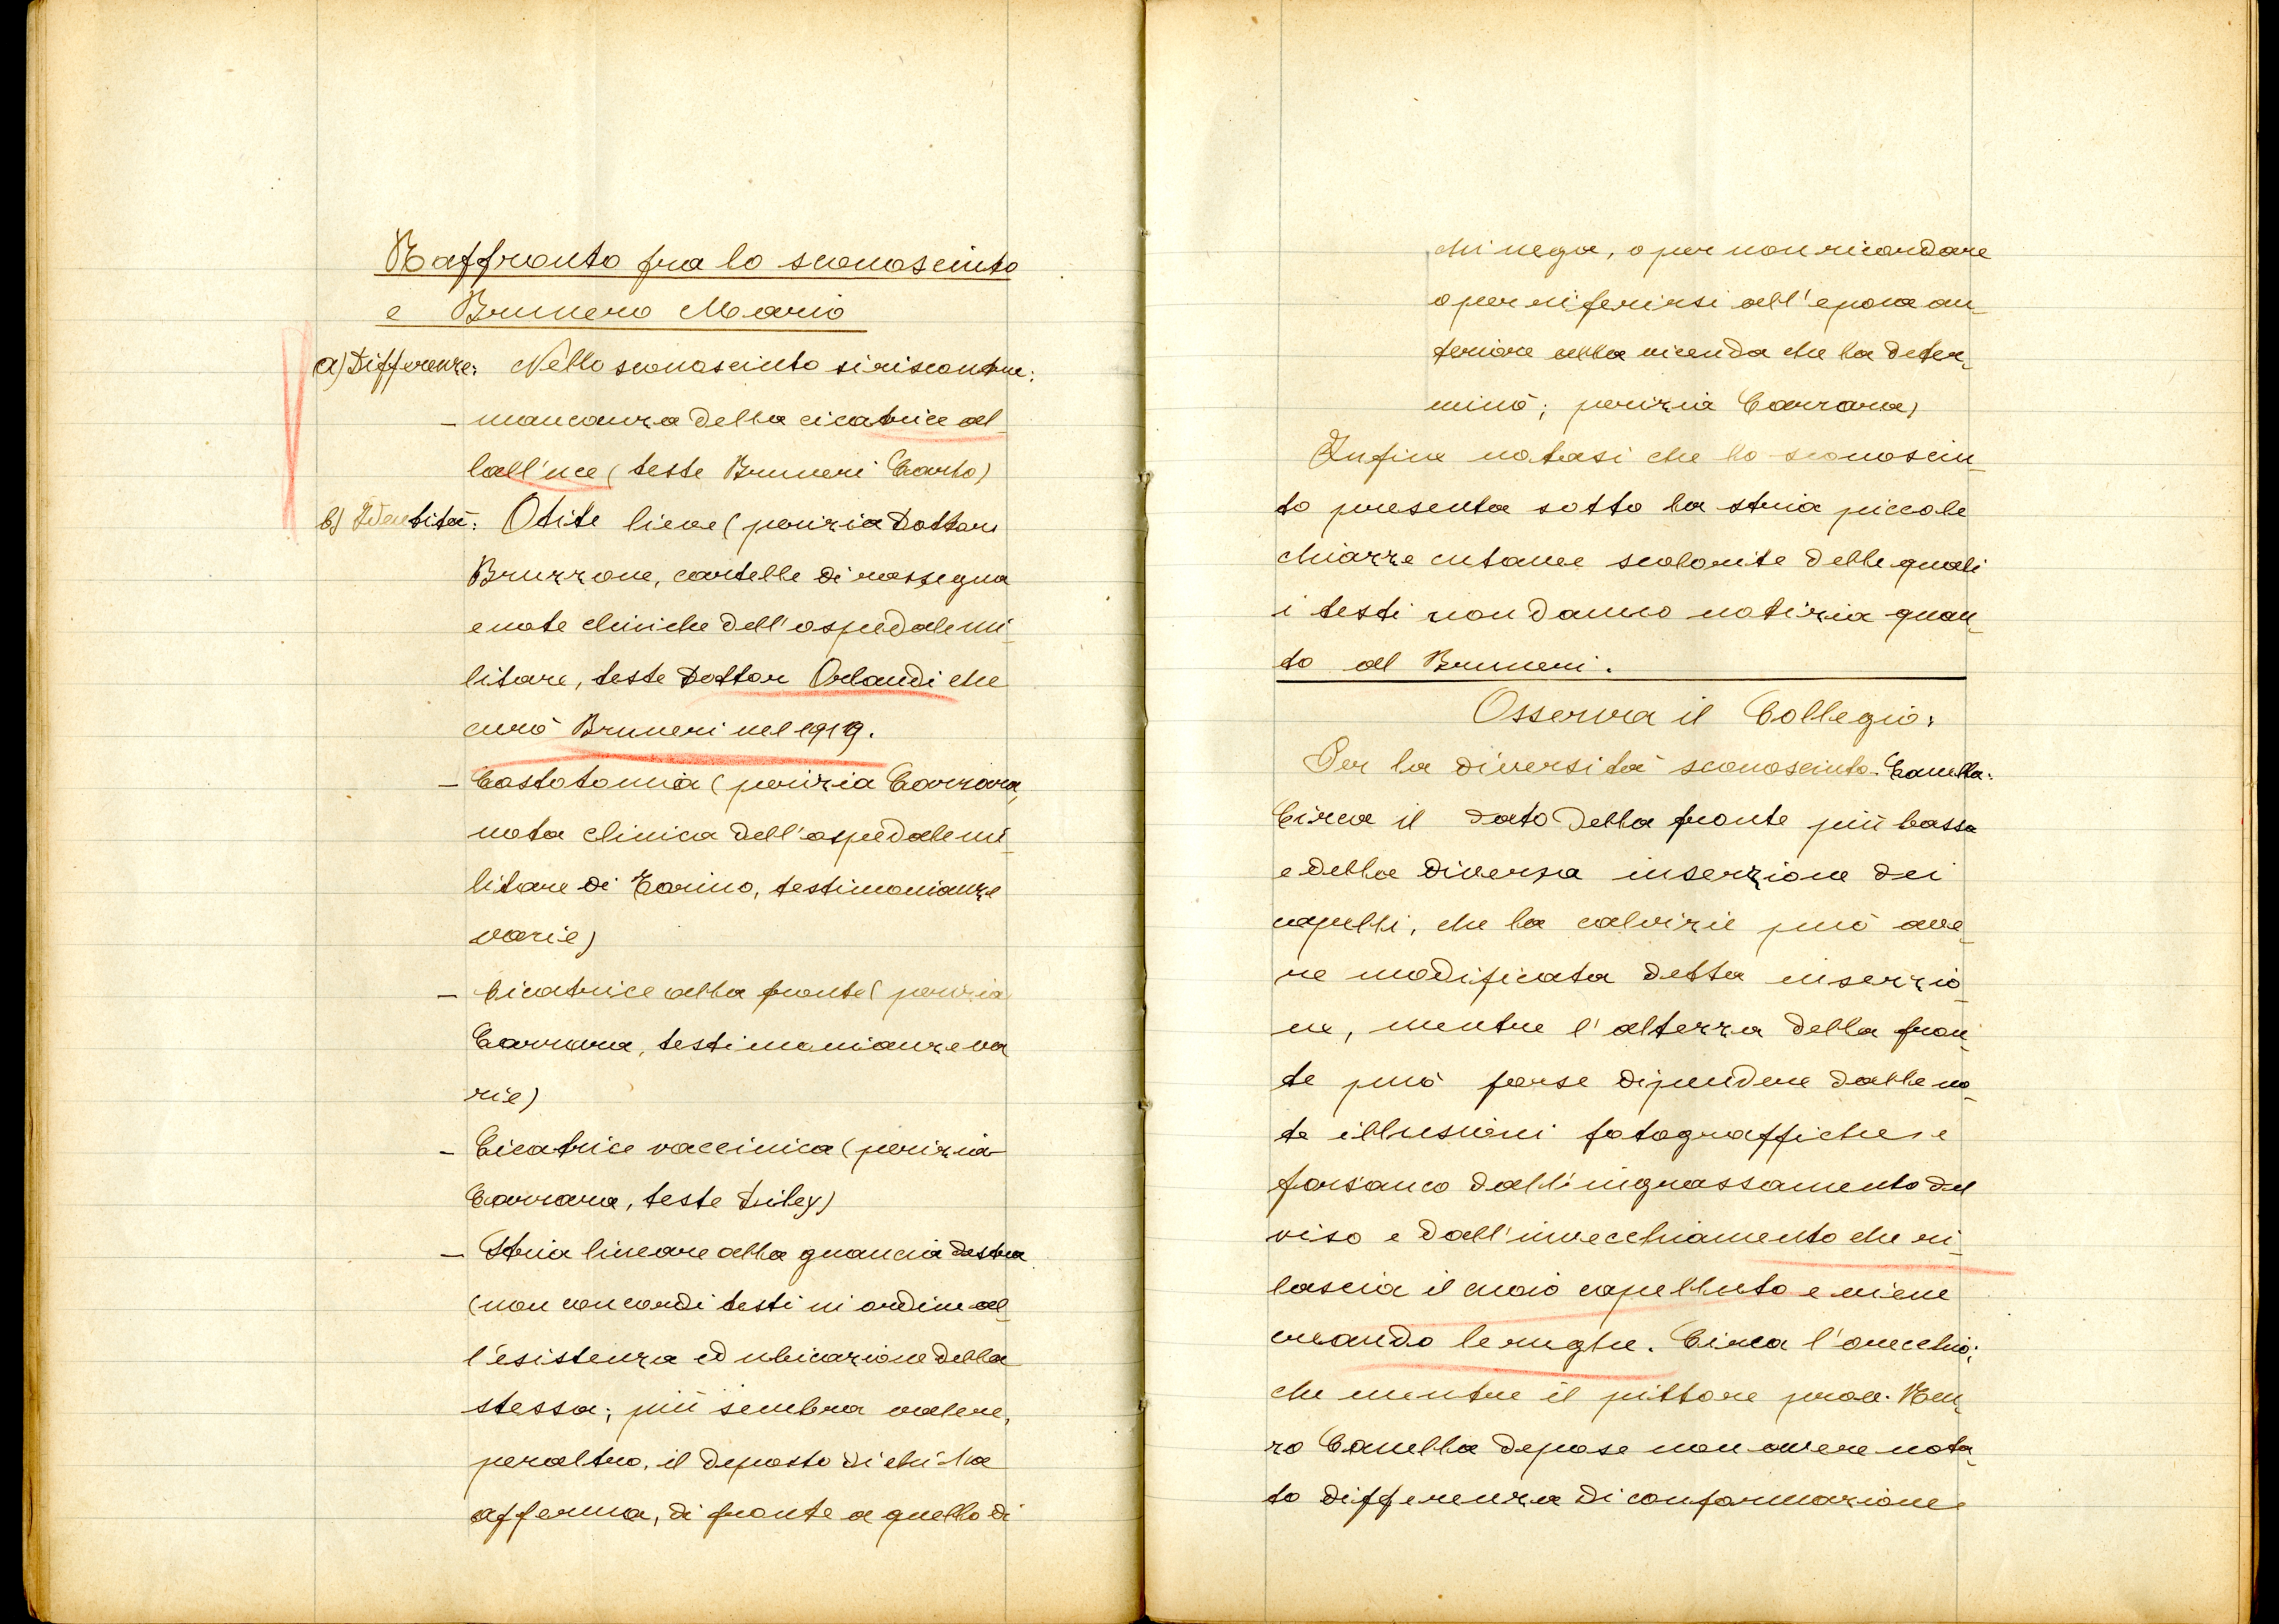 Raffronto fra lo sconosciuto
e Brunero Mario
a) Differenze: Nello sconosciuto si riscontra:
- mancanza della cicatrice al
l'alluce (teste Bruneri Carlo)
b) Identità: Otite lieve (perizia Dottore
Bruzzone, cartelle di rassegna
e note cliniche dell'ospedale mi-
litare, teste Dottor Orlandi che
curò Bruneri nel 1919.
- Costotomia (perizia Carrara,
nota clinica dell'ospedale mi-
litare di Torino, testimonianze
varie)
- Cicatrice alla fronte (perizia
Carrara, testimonianze va
rie)
- Cicatrice vaccinica (perizia
Carrara, teste
- Stria lineare alla guancia destra
(non concordi testi in ordine al-
l'esistenza ed ubicazione della
stessa; più sembra valere,
peraltro, il deposto di chi la
afferma, di fronte a quello di
chi nega, o per non ricordare
o per riferirsi all'epoca an-
teriore alla vicenda che la deter-
minò; perizia Carrara)
Infine notasi che lo sconosciu-
to presenta sotto la stria piccole
chiazze cutanee scolorite delle quali
i testi non danno notizia quan-
to al Bruneri.
Osserva il Collegio:
Per la diversità sconosciuto-Canella:
Circa il dato della fronte più bassa
e della diversa inserzione dei
capelli, che la calvizie può ave-
re modificata detta inserzio-
ne, mentre l'altezza della fron-
te può forse dipendere dalle no-
te illusioni fotograffiche e
fors'anco dall'ingrassamento del
viso e dall'invecchiamento che ri-
lascia il cuoio capelluto e viene
creando le rughe. Circa l'orecchio:
che mentre il pittore prof. Ren-
zo Canella depose non avere nota-
to differenza di conformazione